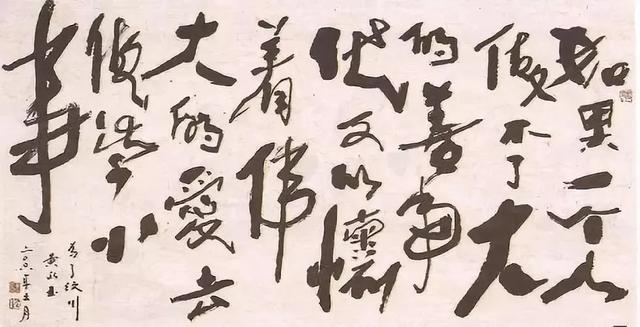 如果一个人
做不了大
的善事
他可以懷
着偉
大的愛去
做些小
事
为了汶川
黄永玉
二〇〇八年五月